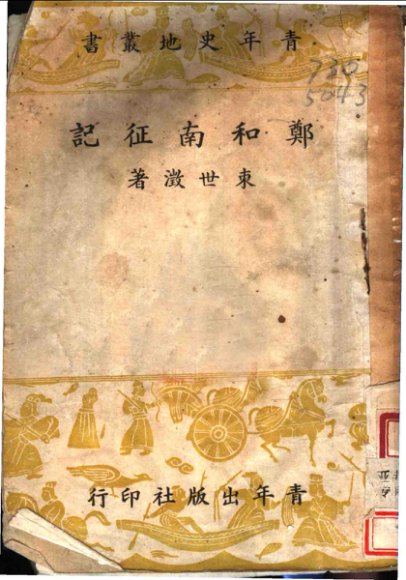 青年史地叢書
730
5043
鄭和南征記
束世澂著
青年出版社印行